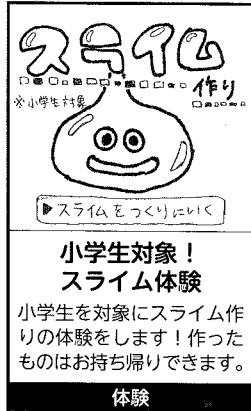 スライム
作り
※小学生対象
▶スライムをつくりにいく
小学生対象！
スライム体験
小学生を対象にスライム作
りの体験をします！作った
ものはお持ち帰りできます。
体験